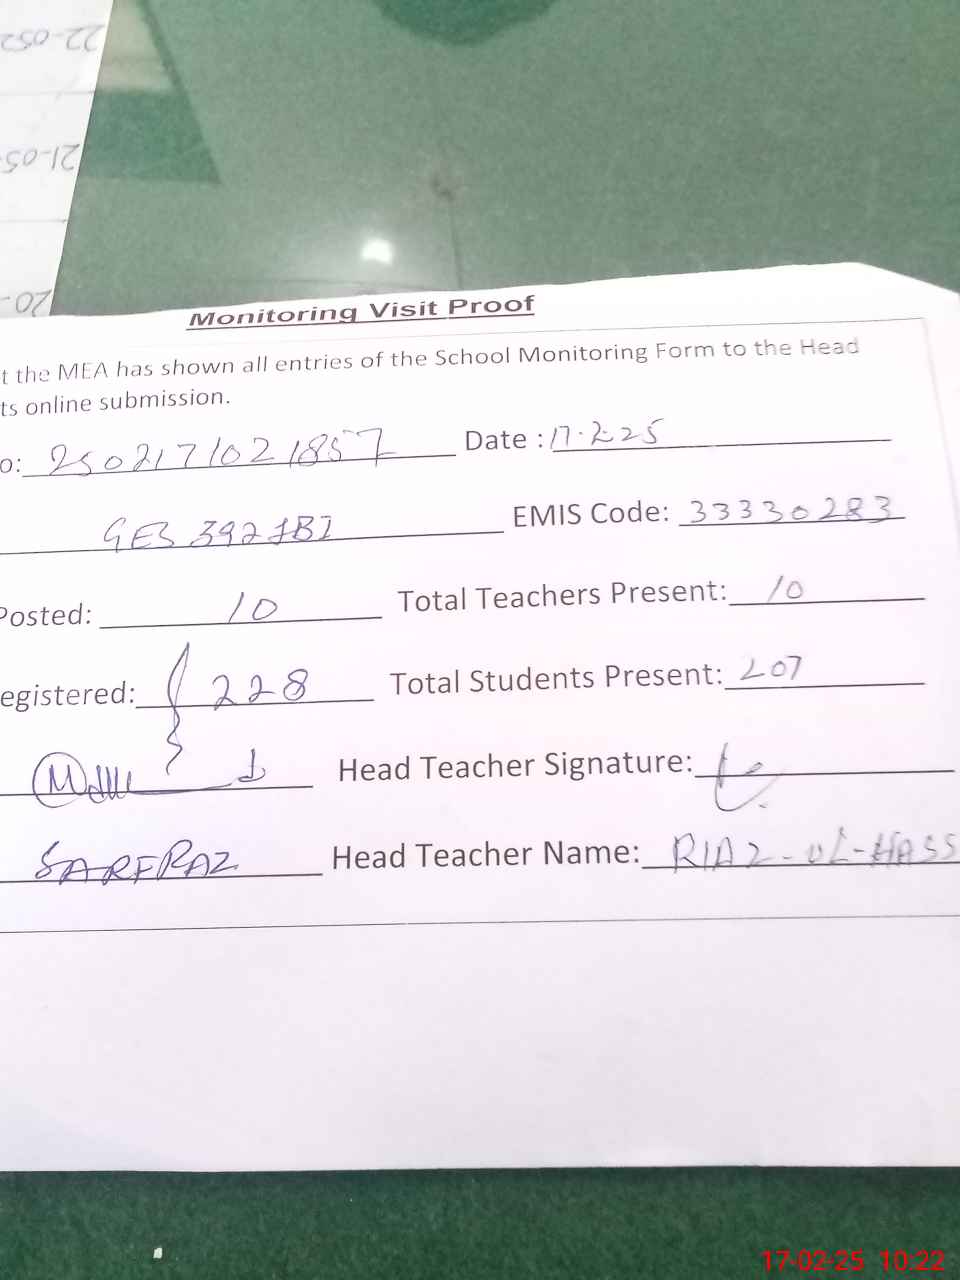 22-052
21-05
20-
Monitoring Visit Proof
t the MEA has shown all entries of the School Monitoring Form to the Head
ts online submission.
o: 2502171021857 Date : 17-2-25
GES 392 JB1 EMIS Code: 33330283
Posted: 10 Total Teachers Present: 10
egistered: 228 Total Students Present: 207
Head Teacher Signature:
SARFRAZ Head Teacher Name: RIAZ-UL-HASS
17-02-25 10:22